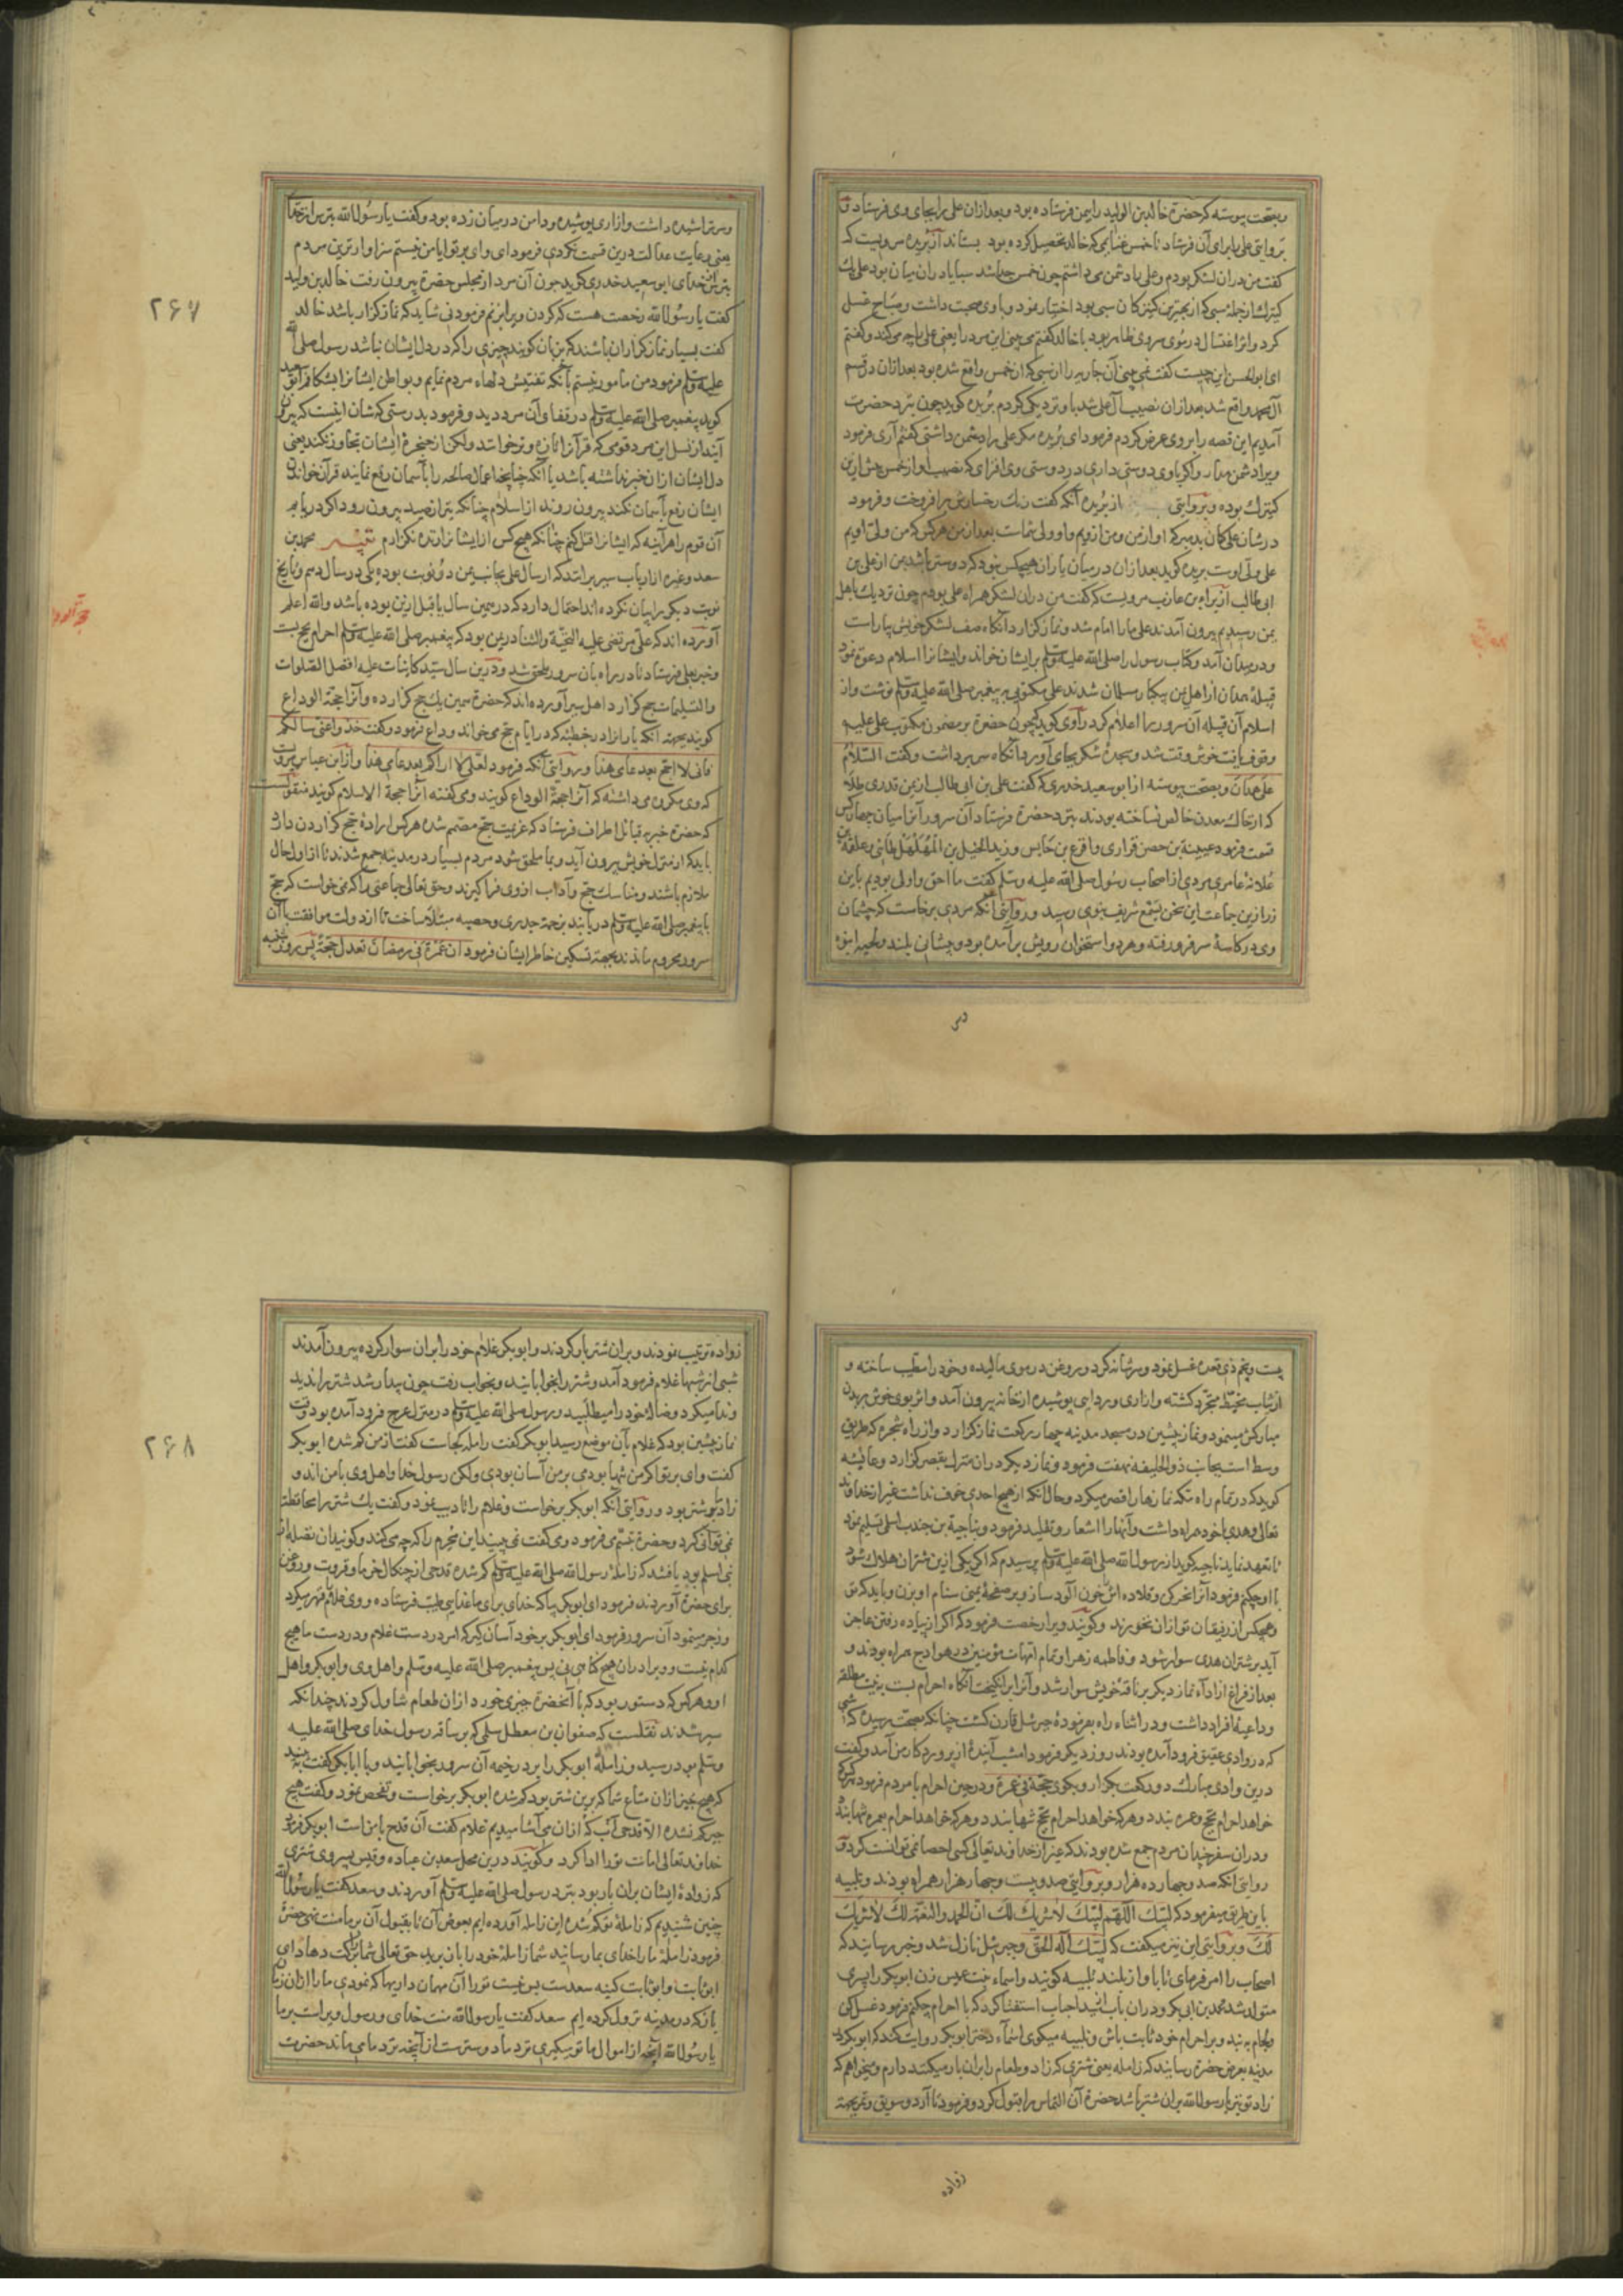 وبصحت پیوسته که حضرة خالد بن الولید را بیمن فرستاده بود و بعد ازان علی را بجای وی فرستاد و
بروایتی علی را برای آن فرستاد تا خمس غنایمی که خالد تحصیل کرده بود بستاند از بریده مرویست که
گفت من دران لشکر بودم و علی را دشمن می داشتم چون خمس جدا شد سبایا دران میان بود علی یک
کنیزک از جمله سبی که از بهترین کنیزکان سبی بود اختیار نمود و با وی صحبت داشت و صباح غسل
کرد و اثر اغتسال در موی سر وی ظاهر بود با خالد گفتم می بینی این مرد را یعنی علی را چه می کند و گفتم
ای ابوالحسن این چیست گفت نمی بینی آن جاریه را از سبی که از خمس واقع شده بود بعد ازان در قسم
آل محمد واقع شد بعد ازان نصیب آل علی شد با و نزدیکی کردم بریده گوید چون بنزد حضرت
آمدیم این قصه را بروی عرض کردم فرمود ای بریده مگر علی را دشمن داشتی گفتم آری فرمود
ویرا دشمن مدار و اگر با وی دوستی داری در دوستی وی افزای که نصیب او از خمس بیش ازین
کنیزک بوده و بروایتی از بریده آنکه گفت رنک رخسارش برافروخت و فرمود
در شان علی گمان بد مبر که او از من و من ازویم و او ولی شماست بعد از من هرکس که من ولی اویم
علی ولی اوست بریده گوید بعد ازان در میان یاران هیچکس نبود که دوستر باشد بمن از علی بن
ابی طالب از براء بن عازب مرویست که گفت من دران لشکر همراه علی بودم چون نزدیک باهل
یمن رسیدیم بیرون آمدند علی ما را امام شد و نماز گزارد آنگاه صف لشکر خویش بیاراست
و در میدان آمد و کتاب رسول را صلی الله علیه وسلم برایشان خواند و ایشانرا اسلام دعوة نمود
قبیلهٔ همدان از اهل یمن بیکبار مسلمان شدند علی مکتوبی به پیغمبر صلی الله علیه وسلم نوشت و از
اسلام آن قبیله آن سرور را اعلام کرد راوی گوید که چون حضرة بر مضمون مکتوب علی علیه
وقوف یافت خوش وقت شد و سجدهٔ شکر بجای آورد آنگاه سر برداشت و گفت السلام
علی همدان و بصحت پیوسته از ابو سعید خدری که گفت علی بن ابی طالب از یمن قدری طلا
که از خاک معدن خالص نساخته بودند بنزد حضرة فرستاد آن سرور آنرا میان چهار کس
قسمت فرمود عیینة بن حصن فزاری و اقرع بن حابس و زید الخیل بن المهلهل طائی و علقمة بن
علاثهٔ عامری مردی از اصحاب رسول صلی الله علیه وسلم گفت ما احق و اولی بودیم باین
زر ازین جماعت این سخن بسمع شریف نبوی رسید و روایتی آنکه مردی برخاست که چشمان
وی در کاسهٔ سر فرورفته و هر دو استخوان رویش برآمده بود و پیشانی بلند و لحیه انبوه
وسر
وسر تراشیده داشت و ازاری پوشیده و دامن در میان زده بود و گفت یا رسول الله بترس از خدا
یعنی رعایت عدالت درین قسمت نکردی فرمود ای وای بر تو ایا من نیستم سزاوارترین مردم
بترس از خدای ابو سعید خدری گوید چون آن مرد از مجلس حضرة بیرون رفت خالد بن ولید
گفت یا رسول الله رخصت هست که گردن ویرا بزنم فرمود نی شاید که نماز گزار باشد خالد
گفت بسیار نماز گزاران باشند که بزبان گویند چیزی را که در دل ایشان نباشد رسول صلی الله
علیه وسلم فرمود من مامور نیستم بآنکه تفتیش دلهاء مردم نمایم و بواطن ایشانرا بشکافم ابو سعید
گوید پیغمبر صلی الله علیه وسلم در قفای آن مرد دید و فرمود بدرستی که شان اینست که بیرون
آیند از نسل این مرد قومی که قرآن را تازه و تر خوانند ولکن از حنجرهٔ ایشان تجاوز نکند یعنی
دل ایشان ازان خبر نداشته باشد یا آنکه چنانچه اعمال صالحه را بآسمان رفع نمایند قرآن خواندن
ایشان رفع بآسمان نکند بیرون روند از اسلام چنانکه تیر از صید بیرون رود اگر دریابم
آن قوم را هر آینه که ایشانرا قتل کنم چنانکه هیچ کس از ایشانرا زنده نگذارم تنبیه محمد بن
سعد وغیره از ارباب سیر برانند که ارسال علی بجانب یمن دو نوبت بوده یکی در سال دهم و تاریخ
نوبت دیگر را بیان نکرده اند احتمال دارد که در همین سال یا قبل ازین بوده باشد والله اعلم
آورده اند که علی مرتضی علیه التحیة والثناء در یمن بود که پیغمبر صلی الله علیه وسلم احرام بحج بست
و خبر بعلی فرستاد تا در راه بان سرور ملحق شد و درین سال سید کاینات علیه افضل الصلوات
والتسلیمات حج گزارد اهل سیر آورده اند که حضرة همین یک حج گزارده و آنرا حجة الوداع
گویند بجهة آنکه یارانرا در خطبهٔ که در ایام حج می خواند وداع فرمود و گفت خذوا عنی مناسککم
فانی لا احج بعد عامی هذا و روایتی آنکه فرمود لعلی لا اراکم بعد عامی هذا و از ابن عباس مرویست
که وی مکروه می داشته که آنرا حجة الوداع گویند و می گفته آنرا حجة الاسلام گویند منقول
که حضرة خبر بقبائل اطراف فرستاد که عزیمت حج مصمم شده هر کس ارادهٔ حج گزاردن دارد
باید که از منزل خویش بیرون آید و بما ملحق شود مردم بسیار در مدینه جمع شدند تا از اول حال
ملازم باشند و مناسک حج و آداب ازوی فراگیرند و حق تعالی جماعتی را که نمی خواست که حج
با پیغمبر صلی الله علیه وسلم دریابند بزحمة جدری و حصبه مبتلا ساخت تا از دولت موافقت با آن
سرور محروم ماندند بجهة تسکین خاطر ایشان فرمود ان عمرة فی رمضان تعدل حجة پس روز شنبه
۲۶۷
بیست و پنجم ذی قعده غسل نمود و سر شانه کرد و روغن در موی مالیده و خود را مطیب ساخته و
از ثیاب مخیط متجرد گشته و ازاری و ردایی پوشیده از خانه بیرون آمد و اثر بوی خوش بر بدن
مبارکش مینمود و نماز پیشین در مسجد مدینه چهار رکعت نماز گزارد و از راه شجره که طریق
وسط است بجانب ذوالحلیفه نهضت فرمود و نماز دیگر دران منزل بقصر گزارد و عایشه
گوید که در تمام راه مکه نمازها را قصر میکرد و حال آنکه از هیچ احدی خوف نداشت غیر از خداوند
تعالی و هدی با خود همراه داشت و آنها را اشعار و تقلید فرمود و بناجیة بن جندب اسلمی تسلیم نمود
تا تعهد نماید ناجیه گوید از رسول الله صلی الله علیه وسلم پرسیدم که اگر یکی ازین شتران هلاک شود
با او چکنم فرمود آنرا نحر کن و قلاده اش خون آلود ساز و بر صفحهٔ یمنی سنام او بزن و باید که تو
و هیچکس از رفیقان تو ازان نخورند و گویند ویرا رخصت فرمود که اگر از پیاده رفتن عاجز
آید بر شتران هدی سوار شود و فاطمه زهرا و تمام امهات مؤمنین در هوادج همراه بودند و
بعد از فراغ از اداء نماز دیگر بر ناقهٔ خویش سوار شد و آنرا برانگیخت آنگاه احرام بست به نیت مطلقه
و داعیهٔ افراد داشت و در اثناء راه بفرمودهٔ جبرئیل قارن گشت چنانکه بصحت رسیده که شبی
که در وادی عقیق فرود آمده بودند روز دیگر فرمود امشب آیندهٔ از پروردگار من آمد و گفت
درین وادی مبارک دو رکعت بگزار و بگوی حجة فی عمرة و در حین احرام با مردم فرمود هر که
خواهد احرام بحج و عمره بندد و هر که خواهد احرام بحج تنها بندد و هر که خواهد احرام بعمره تنها بندد
و دران سفر چندان مردم جمع شده بودند که غیر از خداوند تعالی کسی احصا نمی توانست کرد و
روایتی آنکه صد و چهارده هزار و بروایتی صد و بیست و چهار هزار همراه بودند و تلبیه
باین طریق میفرمود که لبیک اللهم لبیک لاشریک لک ان الحمد والنعمة لک لاشریک
لک و بروایتی این نیز میگفت که لبیک اله الحق و جبرئیل نازل شد و خبر رسانید که
اصحاب را امر فرمای تا باواز بلند تلبیه گویند و اسماء بنت عمیس زن ابوبکر را پسری
متولد شد محمد بن ابی بکر و دران باب انسید احباب استفتا کرد که با احرام چکنم فرمود غسل کن
ولجام به بند و بر احرام خود ثابت باش و تلبیه میگوی اسماء دختر ابوبکر روایت کند که ابوبکر در
مدینه بعرض حضرة رسانید که زامله یعنی شتری که زاد و طعام را بران بار میکنند دارم و میخواهم که
زاد تو نیز یا رسول الله بران شتر باشد حضرة آن التماس را قبول کرد و فرمود تا آرد و سویق و تمر بجهة
زواده
زواده ترتیب نمودند و بران شتر بار کردند و ابوبکر غلام خود را بران سوار کرده بیرون آمدند
شبی از شبها غلام فرود آمد و شتر را بخوابانید و بخواب رفت چون بیدار شد شتر را ندید
و ندا میکرد و ضالهٔ خود را میطلبید و رسول صلی الله علیه وسلم در منزل عرج فرود آمده بود وقت
نماز پیشین بود که غلام بآن موضع رسید ابوبکر گفت زامله کجاست گفت از من گم شده ابوبکر
گفت وای بر تو اگر من تنها بودمی بر من آسان بودی ولکن رسول خدا و اهل وی با من اند و
زاد او بر شتر بود و روایتی آنکه ابوبکر برخواست و غلام را تادیب نمود و گفت یک شتر را محافظت
نمی توانی کرد و حضرة تبسم می فرمود و می گفت نمی بینید این محرم را که چه می کند و گویند آن نضلهٔ
بنی اسلم بود یافتند که زاملهٔ رسول الله صلی الله علیه وسلم گم شده قدحی از چنگال خرما و قروت و روغن
برای حضرة آوردند فرمود ای ابوبکر بیا که خدای برای ما غذایی طیب فرستاده و وی غلام قهر میکرد
و زجر مینمود آن سرور فرمود ای ابوبکر بر خود آسان گیر که امر در دست غلام و در دست ما هیچ
کدام نیست و ویرا دران هیچ گناهی نی پس پیغمبر صلی الله علیه وسلم و اهل وی و ابوبکر و اهل
او و هر کس که دستور بود که با آنحضرة چیزی خورد ازان طعام تناول کردند چندانکه
سیر شدند نقلست که صفوان بن معطل سلمی که بر ساقه رسول خدای صلی الله علیه
وسلم بود در رسید و زاملهٔ ابوبکر را بر در خیمه آن سرور بخوابانید و با ابابکر گفت ببینید
که هیچ چیز ازان متاع شما که برین شتر بود گم شده ابوبکر برخواست و تفحص نمود و گفت هیچ
چیز گم نشده الا قدحی آب که ازان می آشامیدیم غلام گفت آن قدح با من است ابوبکر فرمود
خداوند تعالی امانت تو را ادا کرد و گویند درین محل سعد بن عباده و قیس پسر وی شتری
که زوادهٔ ایشان بران بار بود بنزد رسول صلی الله علیه وسلم آوردند و سعد گفت یا رسول الله
چنین شنیدیم که زاملهٔ تو گم شده این زامله آورده ایم بعوض آن تا بقبول آن بر ما منت نهی حضرة
فرمود زاملهٔ ما را خدای بما رسانید شما زاملهٔ خود را بازبرید حق تعالی شما را برکت دهاد ای
ابوثابت و ابوثابت کنیه سعدست بس نیست تو را آن مهمان داریها که نمودی ما را ازان زمان
بازکه در مدینه نزول کرده ایم سعد گفت یا رسول الله منت خدای و رسول ویراست بر ما
یا رسول الله آنچه از اموال ما تو میگیری نزد ما دوسترست از آنچه نزد ما می ماند حضرت
۲۶۸